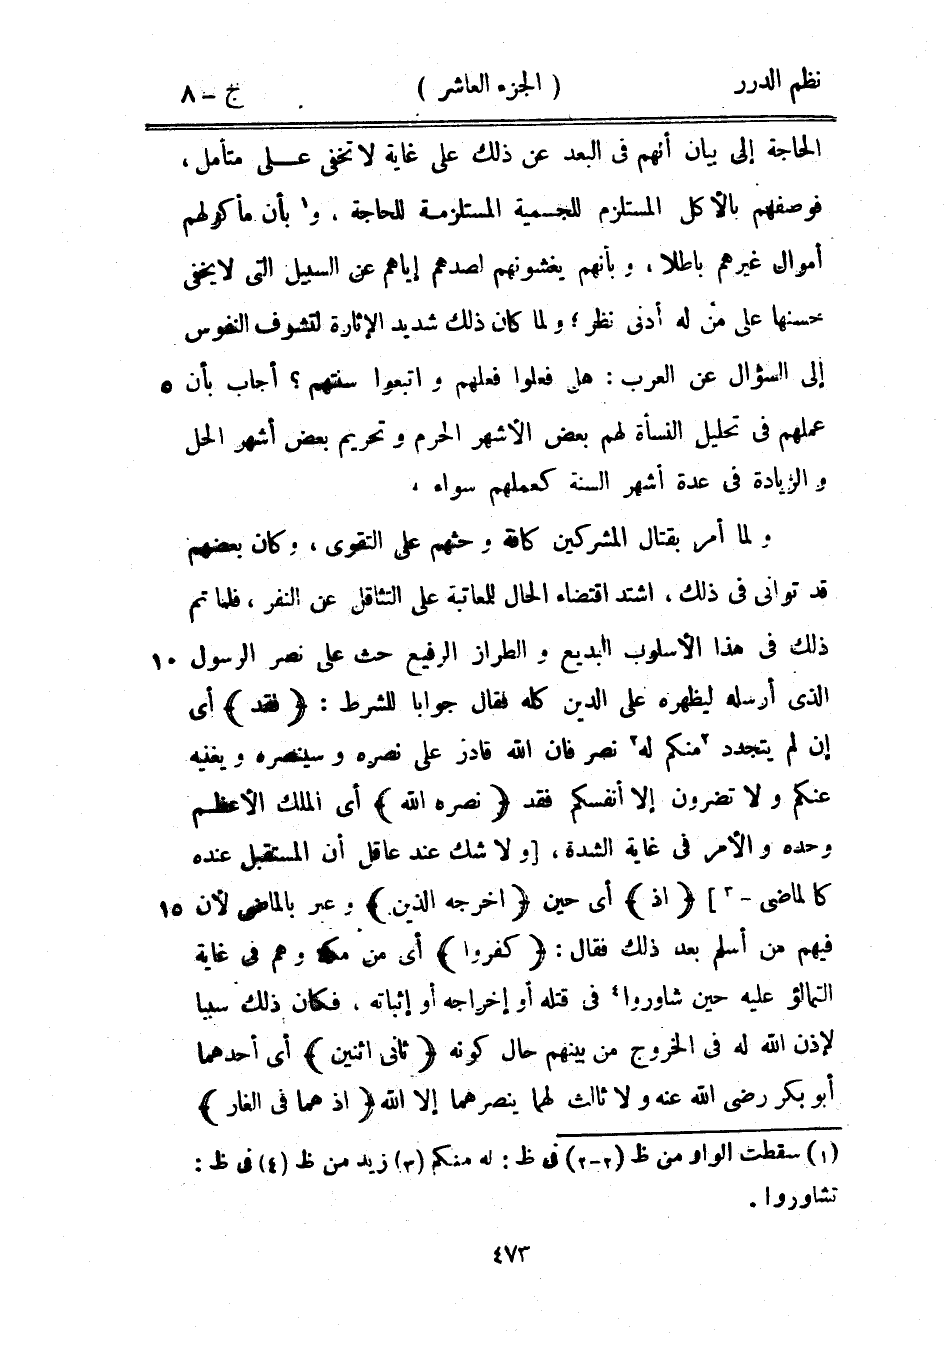 نظم الدرر ( الجزء العاشر ) ج – ٨
الحاجة إلى بيان أنهم فى البعد عن ذلك على غاية لا تخفى على متأمل ،
فوصفهم بالأكل المستلزم للجسمية المستلزمة للحاجة ، و١ بأن مأكولهم
أموال غيرهم باطلا ، و بأنهم يغشونهم لصدهم إياهم عن السبيل التى لايخفى
حسنها على من له أدنى نظر ؛ و لما كان ذلك شديد الإثارة لتشوف النفوس
إلى السؤال عن العرب : هل فعلوا فعلهم و اتبعوا سنتهم ؟ أجاب بأن ٥
عملهم فى تحليل النسأة لهم بعض الأشهر الحرم و تحريم بعض أشهر الحل
و الزيادة فى عدة أشهر السنة كعملهم سواء ،
و لما أمر بقتال المشركين كافة و حثهم على التقوى ، و كان بعضهم
قد توانى فى ذلك ، اشتد اقتضاء الحال للمعاتبة على التثاقل عن النفر ، فلما تم
ذلك فى هذا الأسلوب البديع و الطراز الرفيع حث على نصر الرسول ١٠
الذى أرسله ليظهره على الدين كله فقال جوابا للشرط : ﴿ فقد ﴾ أى
إن لم يتجدد ٢منكم له٢ نصر فان الله قادر على نصره و سينصره و يغنيه
عنكم و لا تضرون إلا أنفسكم فقد ﴿ نصره الله ﴾ أى الملك الأعظم
وحده و الأمر فى غاية الشدة ، [ و لا شك عند عاقل أن المستقبل عنده
كالماضى – ٣ ] ﴿ اذ ﴾ أى حين ﴿ اخرجه الذين ﴾ و عبر بالماضى لأن ١٥
فيهم من أسلم بعد ذلك فقال : ﴿ كفروا ﴾ أى من مكة و هم فى غاية
التمالؤ عليه حين شاوروا٤ فى قتله أو إخراجه أو إثباته ، فكان ذلك سببا
لإذن الله له فى الخروج من بينهم حال كونه ﴿ ثانى اثنين ﴾ أى أحدهما
أبو بكر رضى الله عنه و لا ثالث لهما ينصرهما إلا الله ﴿ اذ هما فى الغار ﴾
(١) سقطت الواو من ظ (٢-٢) فى ظ : له منكم (٣) زيد من ظ (٤) فى ظ :
تشاوروا .
٤٧٣